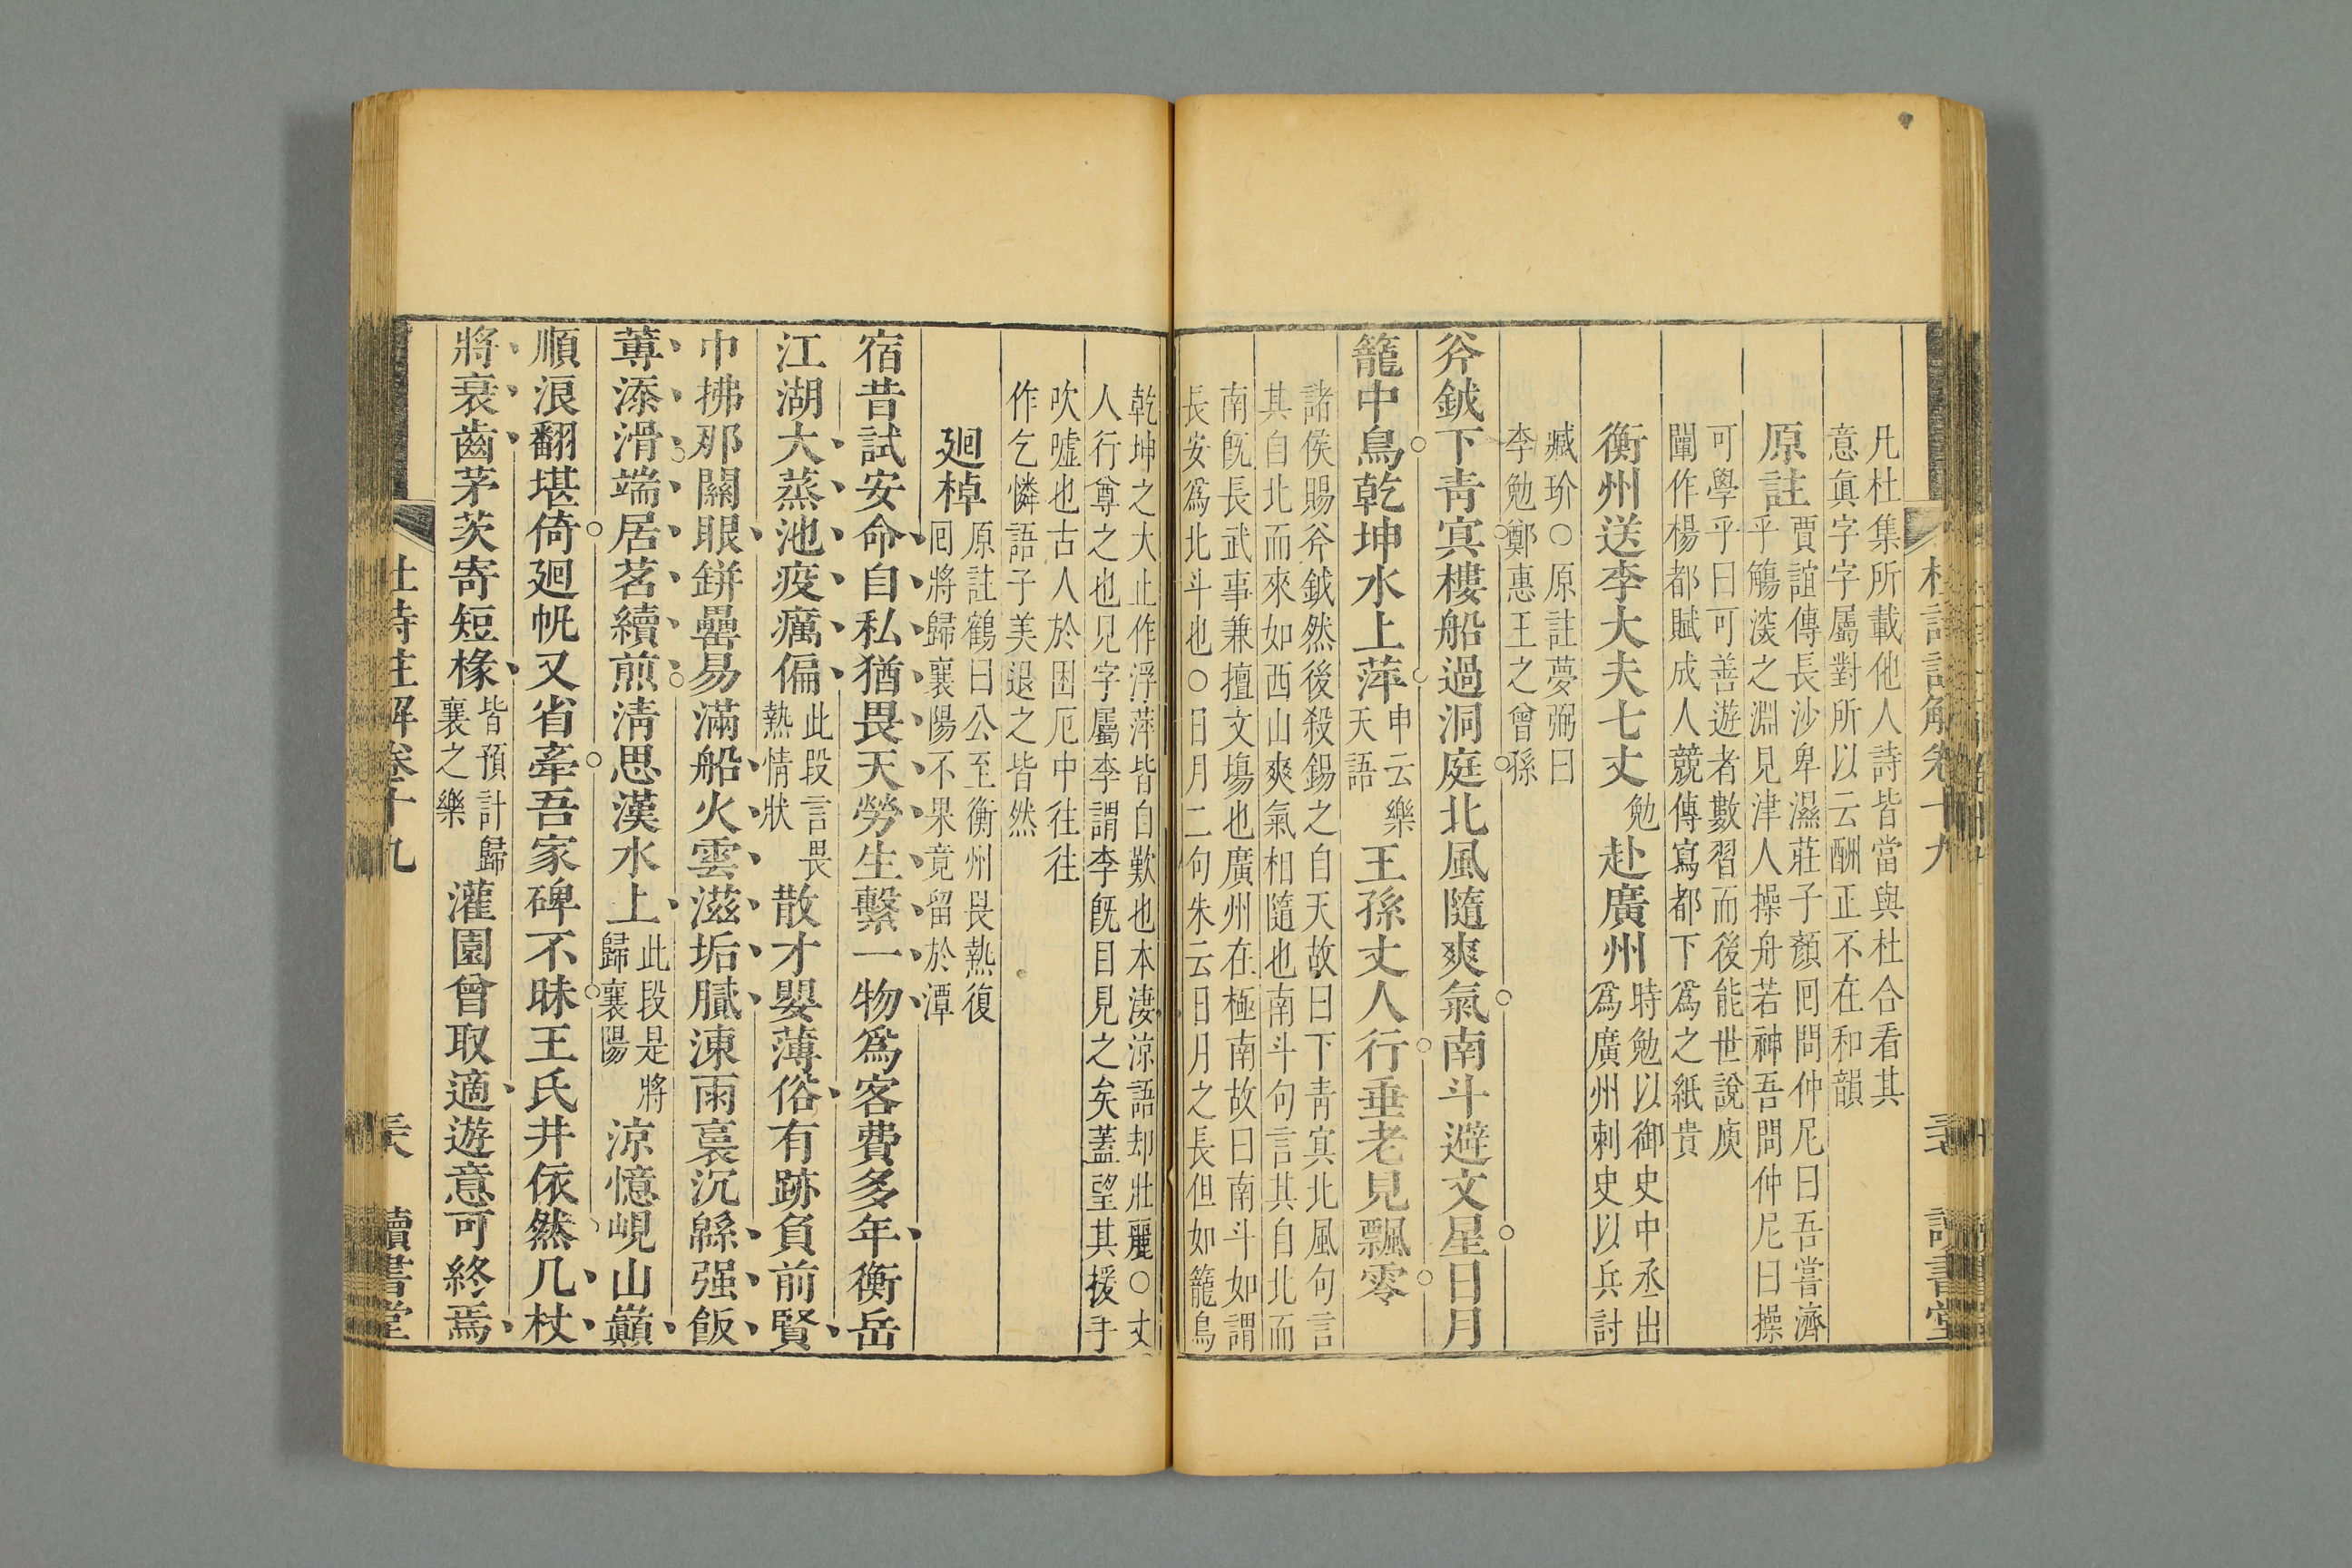 凡杜集所載他人詩皆當與杜合看其
意眞字字屬對所以云酬正不在和韻
原註
賈誼傳長沙卑濕莊子顏囘問仲尼曰吾嘗濟
乎觴深之淵見津人操舟若神吾問仲尼曰操
可學乎曰可善遊者數習而後能世說庾
闡作楊都賦成人競傳寫都下爲之紙貴
衡州送李大夫七丈勉赴廣州
時勉以御史中丞出
爲廣州刺史以兵討
臧玠○原註夢弼曰
李勉鄭惠王之曾孫
斧鉞下靑冥樓船過洞庭北風隨爽氣南斗避文星日月
籠中鳥乾坤水上萍
申云樂
天語
王孫丈人行垂老見飄零
諸侯賜斧鉞然後殺錫之自天故曰下靑冥北風句言
其自北而來如西山爽氣相隨也南斗句言其自北而
南旣長武事兼擅文塲也廣州在極南故曰南斗如謂
長安爲北斗也○日月二句朱云日月之長但如籠鳥
乾坤之大止作浮萍皆自歎也本淒涼語却壯麗○丈
人行尊之也见字屬李謂李旣目見之矣蓋望其援手
吹噓也古人於困厄中往往
作乞憐語子美退之皆然
廻棹
原註鶴曰公至衡州畏熱復
囘將歸襄陽不果竟留於潭
宿昔試安命自私猶畏天勞生繫一物爲客費多年衡岳
江湖大蒸池疫癘偏
此段言畏
熱情狀
散才嬰薄俗有跡負前賢
巾拂那關眼缾罍易滿船火雲滋垢膩凍雨裛沉綿强飯
蓴添滑端居茗續煎淸思漢水上
此段是將
歸襄陽
涼憶峴山巓
順浪翻堪倚廻帆又省牽吾家碑不昧王氏井依然几杖
將衰齒茅茨寄短椽
皆預計歸
襄之樂
灌園曾取適遊意可終焉
杜詩註解卷十九
讀書堂